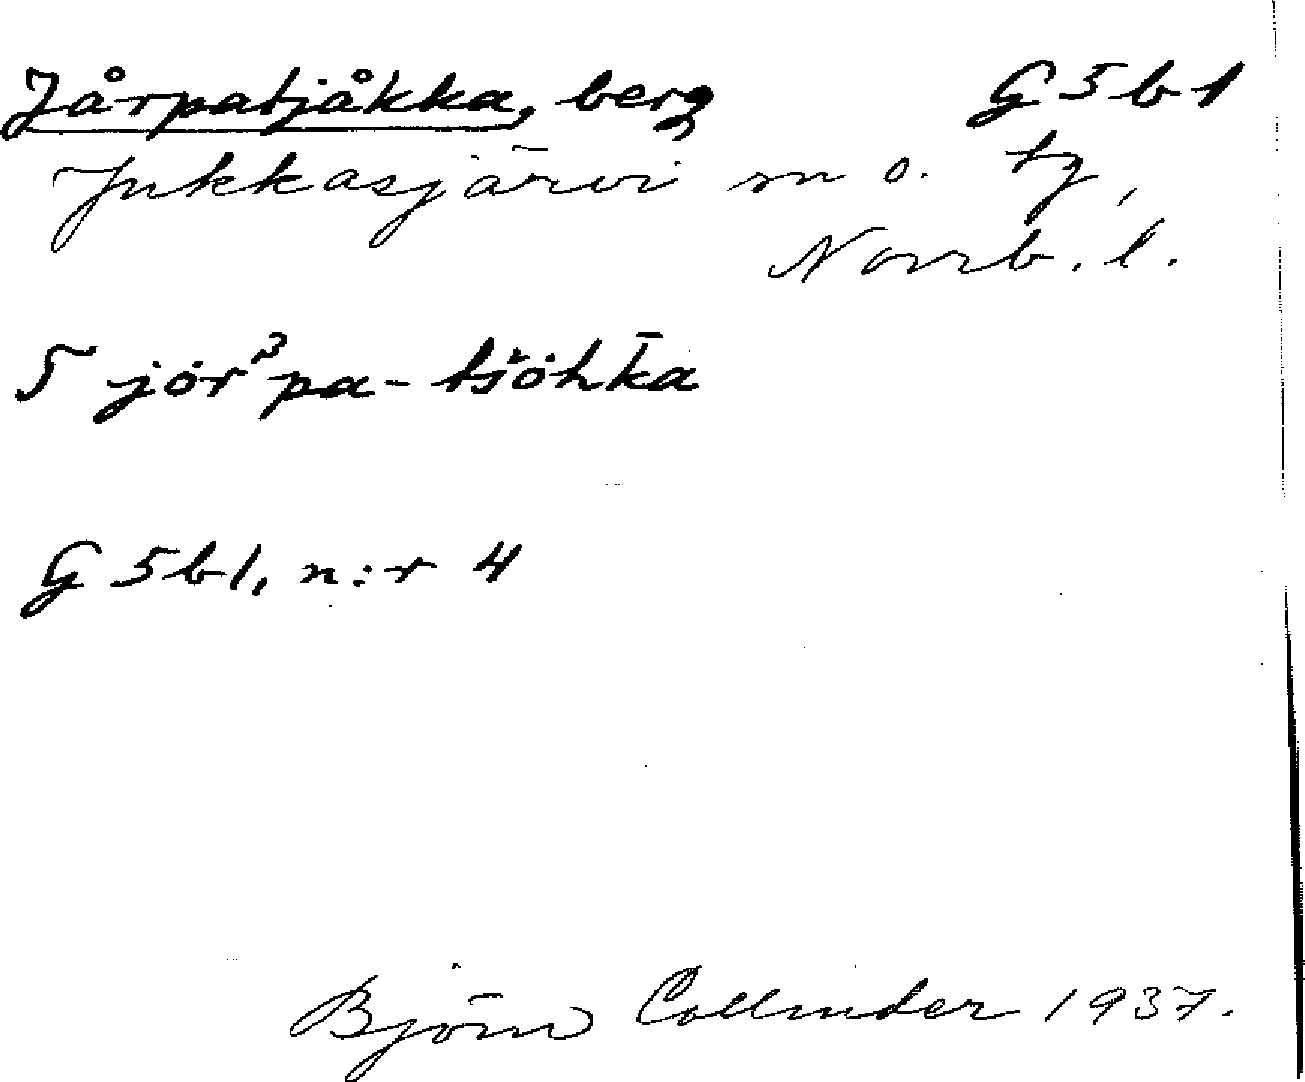 Jårpatjåkka, berg G 5 b 1
Jukkasjärvi sn o. tg,
Norrb. l.
5 jȯr³pa-tšȯhk̄a
G 5 b 1, n:r 4
Björn Collinder 1937.